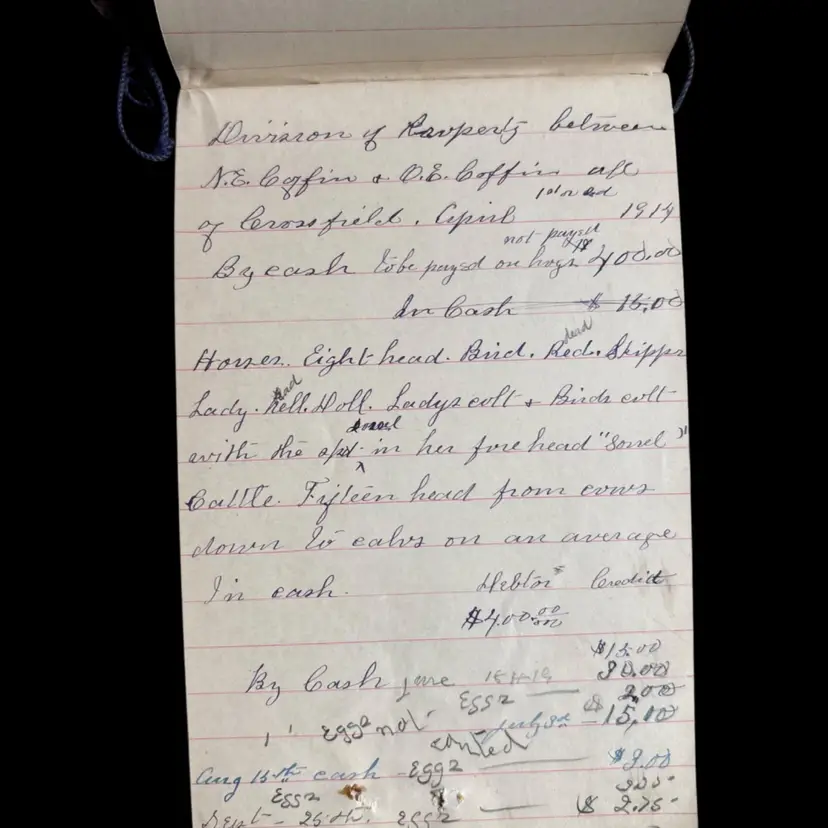 Division of Propertz between
N.E. Coffin & O.E. Coffin all
of Crossfield. April 1st 1914
not payed
By cash to be payed on hogs $ 400.00
In Cash $ 15.00
dead
Horses. Eight head. Bird. Red. Skipps
dead
Lady. Nell. Doll. Ladys colt & Birds colt
with the spot in her fore head "Sorrel"
Cattle. Fifteen head from cows
down to calvs on an average
In cash. Debtor Credit
$400.00
$15.00
By Cash June 15th-14 30.00
Eggs 2.00
" Eggs not July 3rd 15,00
counted
Aug 15th cash - Eggs $3.00
Eggs
Sept - 25th. Eggs $ 2.75